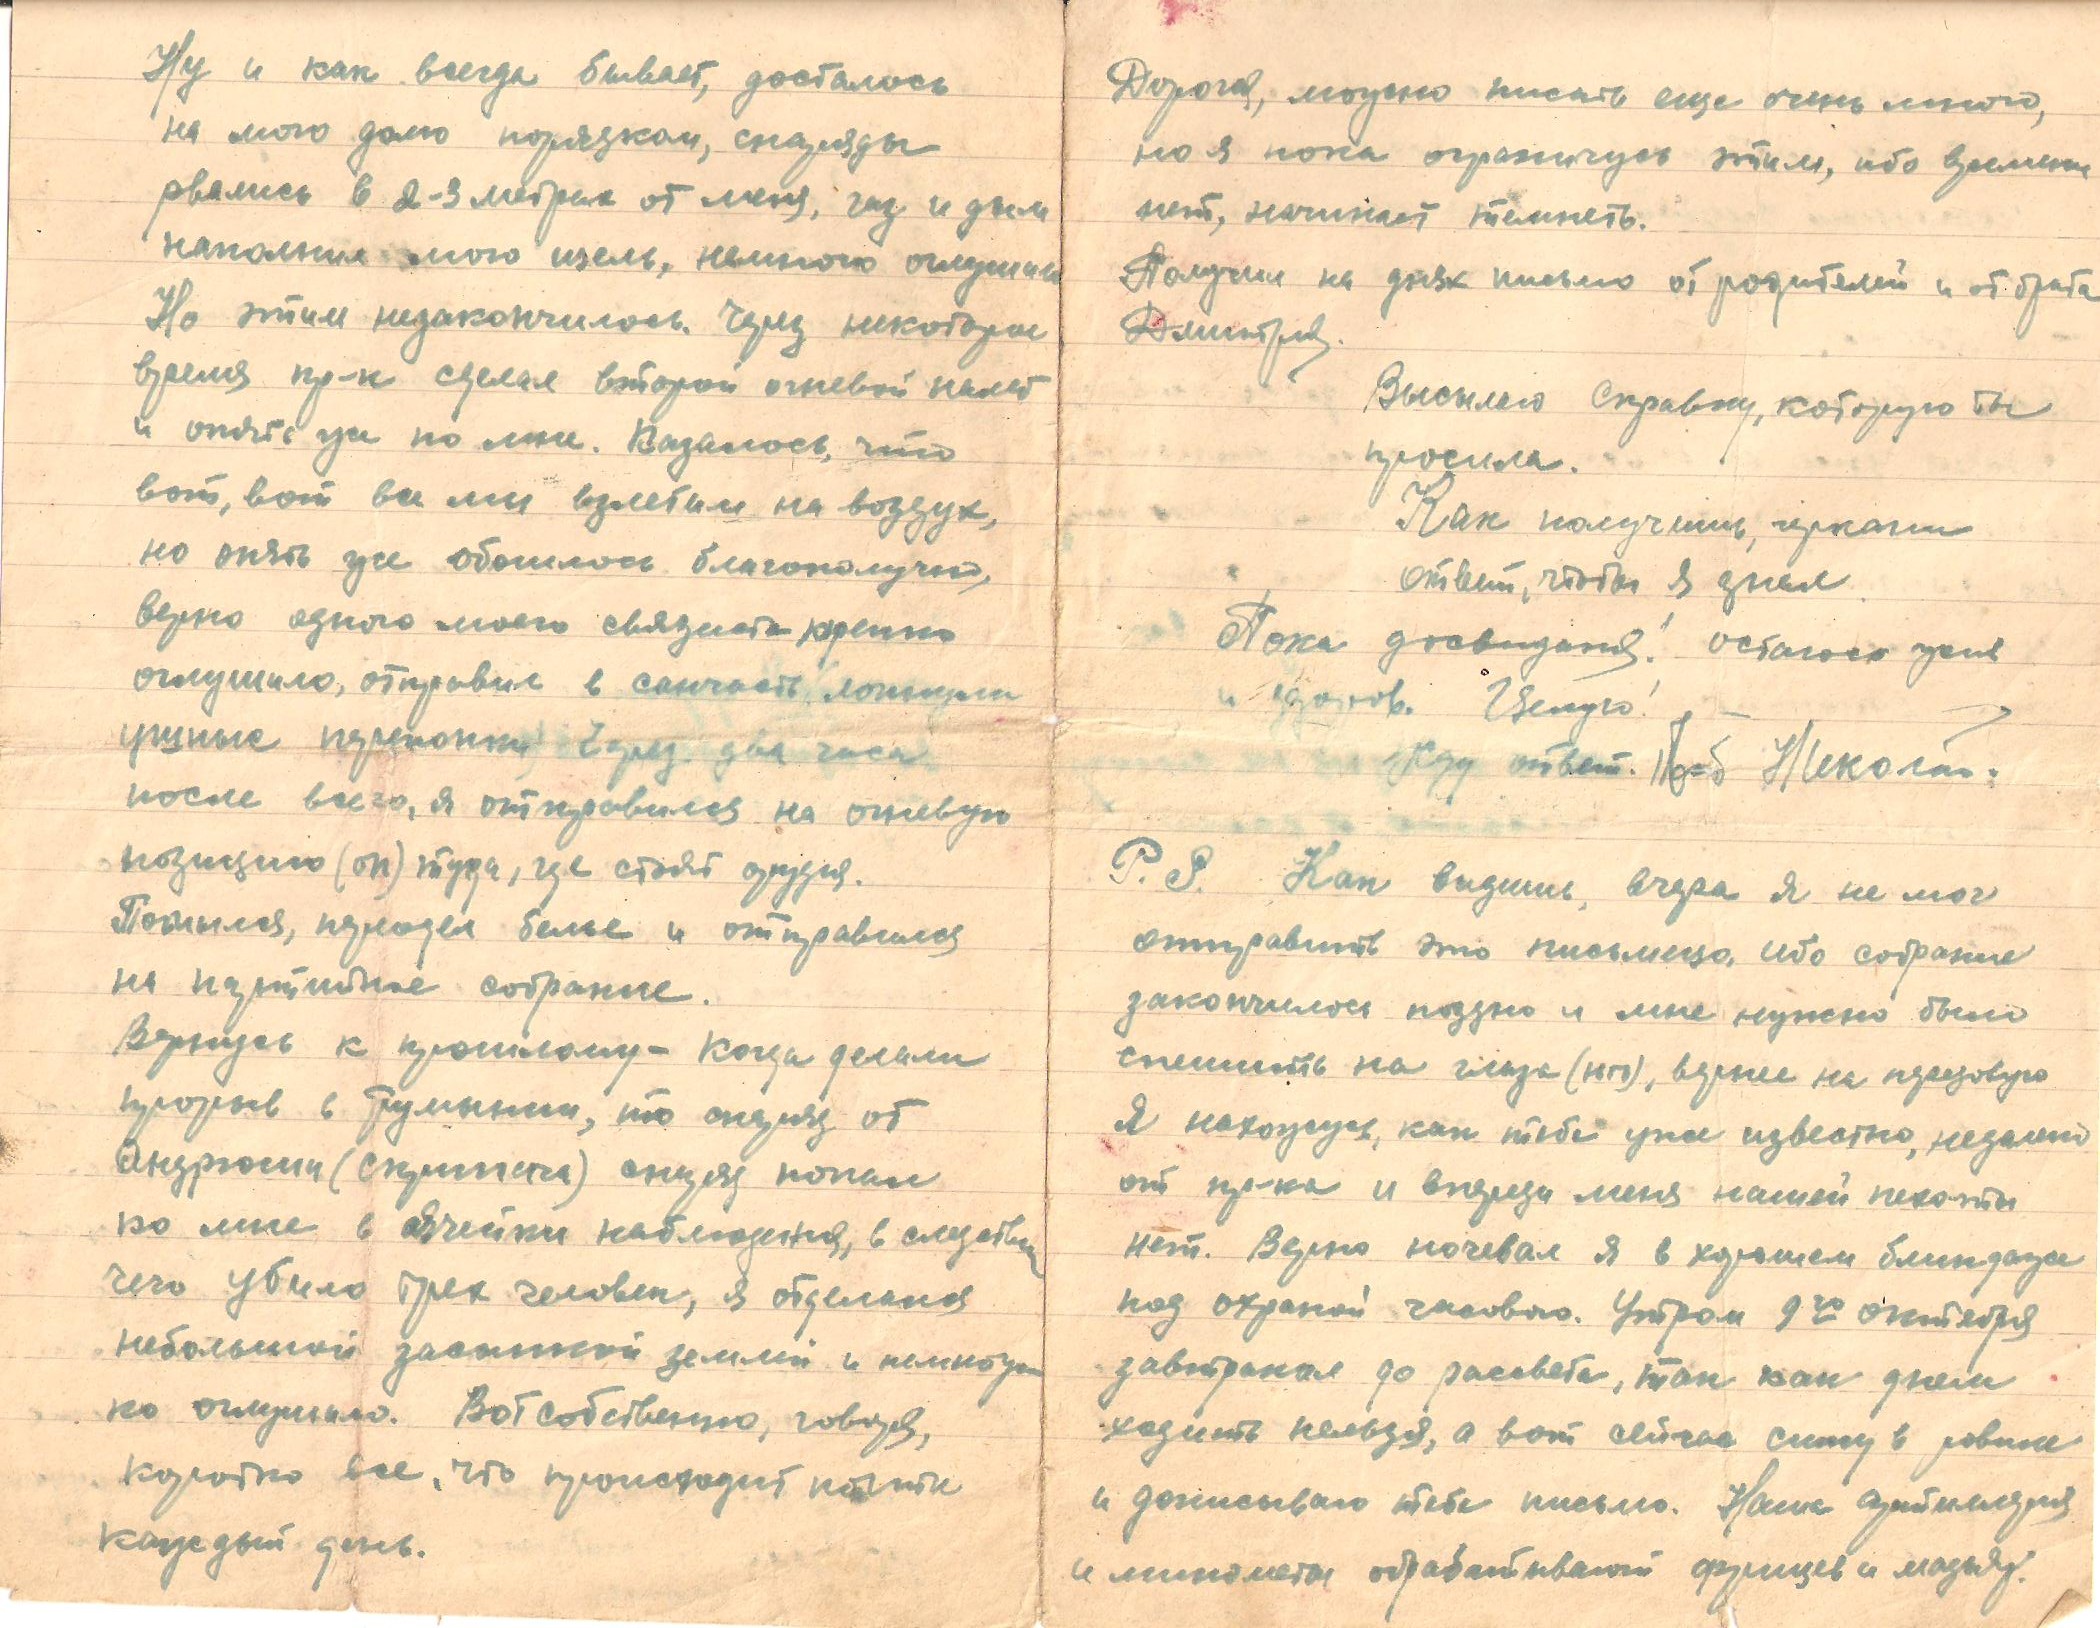 Ну и как всегда бывает, досталось
на мою долю порядком, снаряды
рвались в 2-3 метрах от меня, газ и дым
наполнил мою щель, немного оглушил
Но этим незакончилось. Через некоторое
время пр-к сделал второй огневой налет
и опять уж по мне. Казалось, что
вот, вот все мы взлетим на воздух,
но опять же обошлось благополучно,
верно одного моего связиста крепко
оглушило, отправил в санчасть лопнули
ушные перепонки. Через два часа
после всего, я отправился на огневую
позицию (оп) туда, где стоят орудия.
Помылся, переодел белье и отправился
на партийное собрание.
Вернусь к прошлому - когда делали
прорыв в Румынии, то снаряд от
Андрюши (Скрипача) снаряд попал
ко мне в ячейки наблюдения, в следствии
чего убило трех человек, я отделался
небольшой засыпкой землей и немнож
ко оглушило. Вот собственно, говоря,
коротко все, что происходит почти
каждый день.
Дорогая, можно писать еще очень много,
но я пока ограничусь этим, ибо времени
нет, начинает темнеть.
Получил на днях письмо от родителей и от брата
Дмитрия.
Высылаю справку, которую ты
просила.
Как получишь, черкани
ответ, чтобы я знал.
Пока досвиданья! Остаюсь жив
и здоров. Целую!
Жду ответ. Николай.
P.S. Как видишь, вчера я не мог
отправить это письмецо, ибо собрание
закончилось поздно и мне нужно было
спешить на глаза (нп), вернее на передовую
Я нахожусь, как тебе уже известно, недалеко
от пр-ка и впереди меня нашей пехоты
нет. Верно ночевал я в хорошем блиндаже
под охраной часового. Утром 9го октября
завтракал до рассвета, так как днем
ходить нельзя, а вот сейчас сижу в ровике
и дописываю тебе письмо. Наша артиллерия
и минометы обрабатывают фрицев и мадьяр.